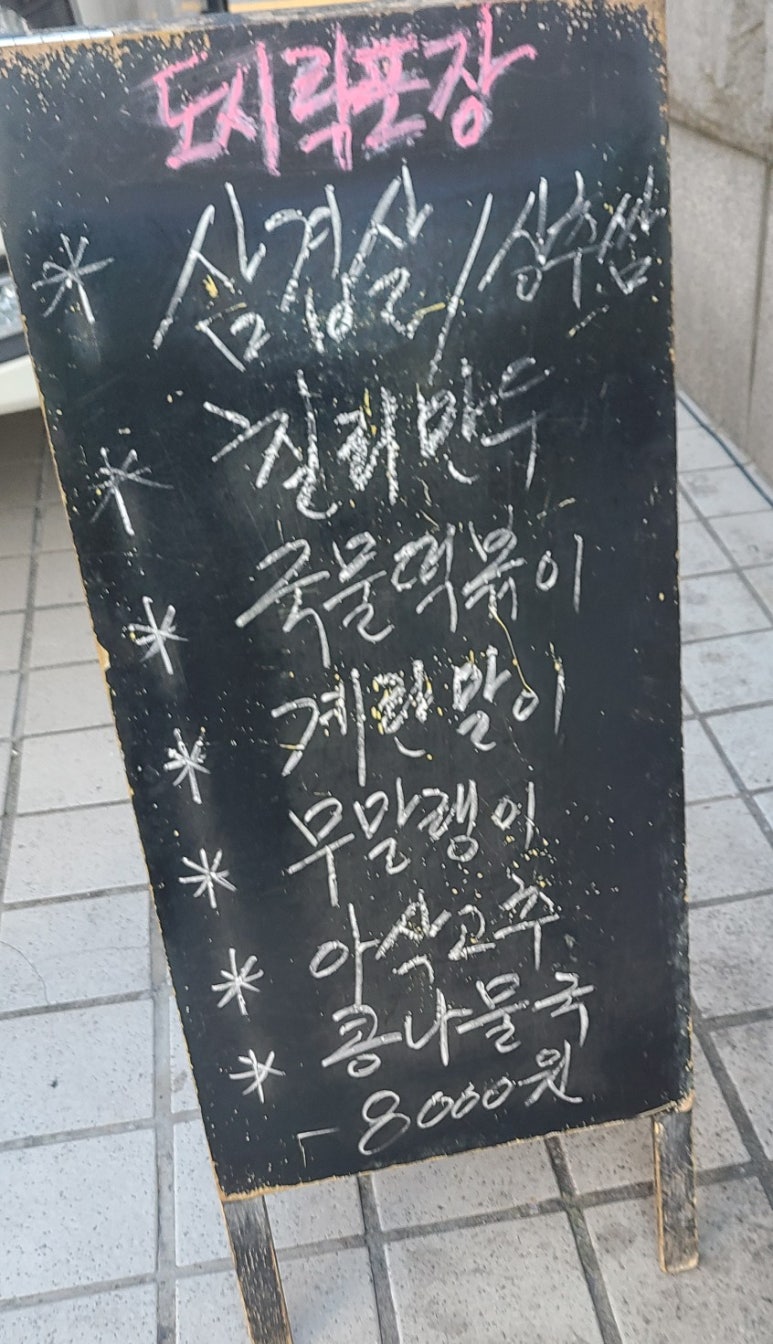 도시락포장
* 삼겹살/상추쌈
* 칠리만두
* 국물떡볶이
* 계란말이
* 무말랭이
* 아삭고추
* 콩나물국
- 8000원